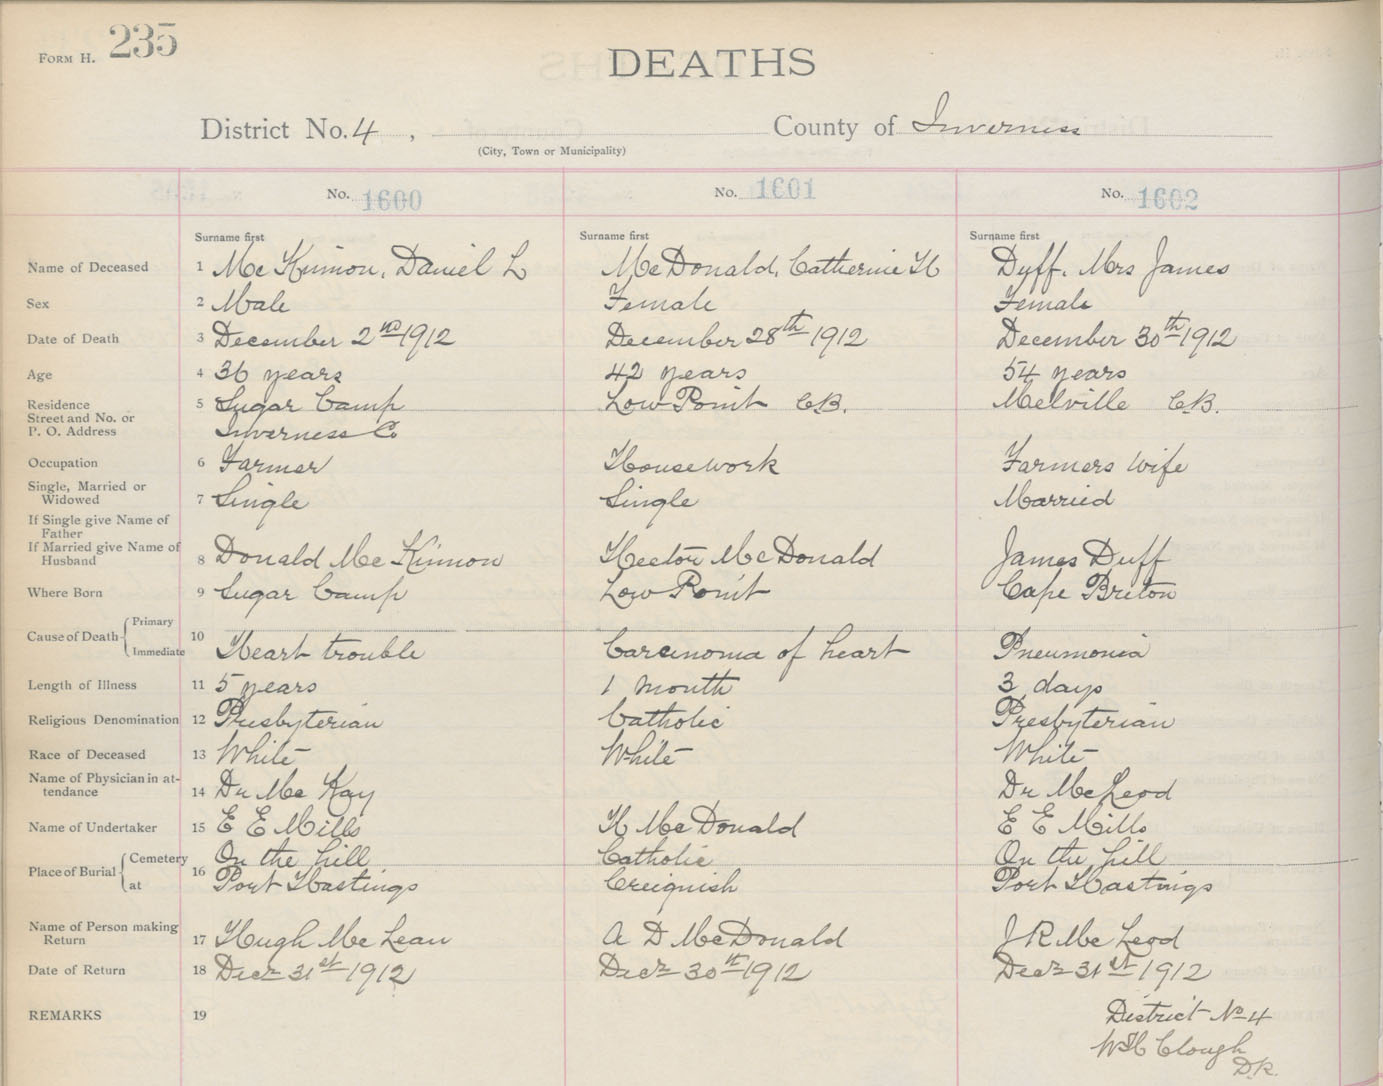 FORM H. 235
DEATHS
District No. 4 , County of Inverness
(City, Town or Municipality)
No. 1600 No. 1601 No. 1602
Surname first Surname first Surname first
Name of Deceased 1 Mc Kinnon, Daniel L Mc Donald, Catherine H Duff. Mrs James
Sex 2 Male Female Female
Date of Death 3 December 2nd 1912 December 28th 1912 December 30th 1912
Age 4 36 years 42 years 54 years
Residence 5 Sugar Camp Low Point C.B. Melville C.B.
Street and No. or
P. O. Address Inverness Co
Occupation 6 Farmer Housework Farmers Wife
Single, Married or
Widowed 7 Single Single Married
If Single give Name of
Father
If Married give Name of
Husband 8 Donald Mc Kinnon Hector Mc Donald James Duff
Where Born 9 Sugar Camp Low Point Cape Breton
Primary
Cause of Death 10
Immediate Heart trouble Carcinoma of heart Pneumonia
Length of Illness 11 5 years 1 month 3 days
Religious Denomination 12 Presbyterian Catholic Presbyterian
Race of Deceased 13 White White White
Name of Physician in at-
tendance 14 Dr Mc Kay Dr McLeod
Name of Undertaker 15 E E Mills H Mc Donald E E Mills
Cemetery On the hill Catholic On the hill
Place of Burial 16
at Port Hastings Creignish Port Hastings
Name of Person making
Return 17 Hugh Mc Lean A D McDonald J R Mc Leod
Date of Return 18 Decr 31st 1912 Decr 30th 1912 Decr 31st 1912
REMARKS 19 District No 4
W H Clough
D.R.